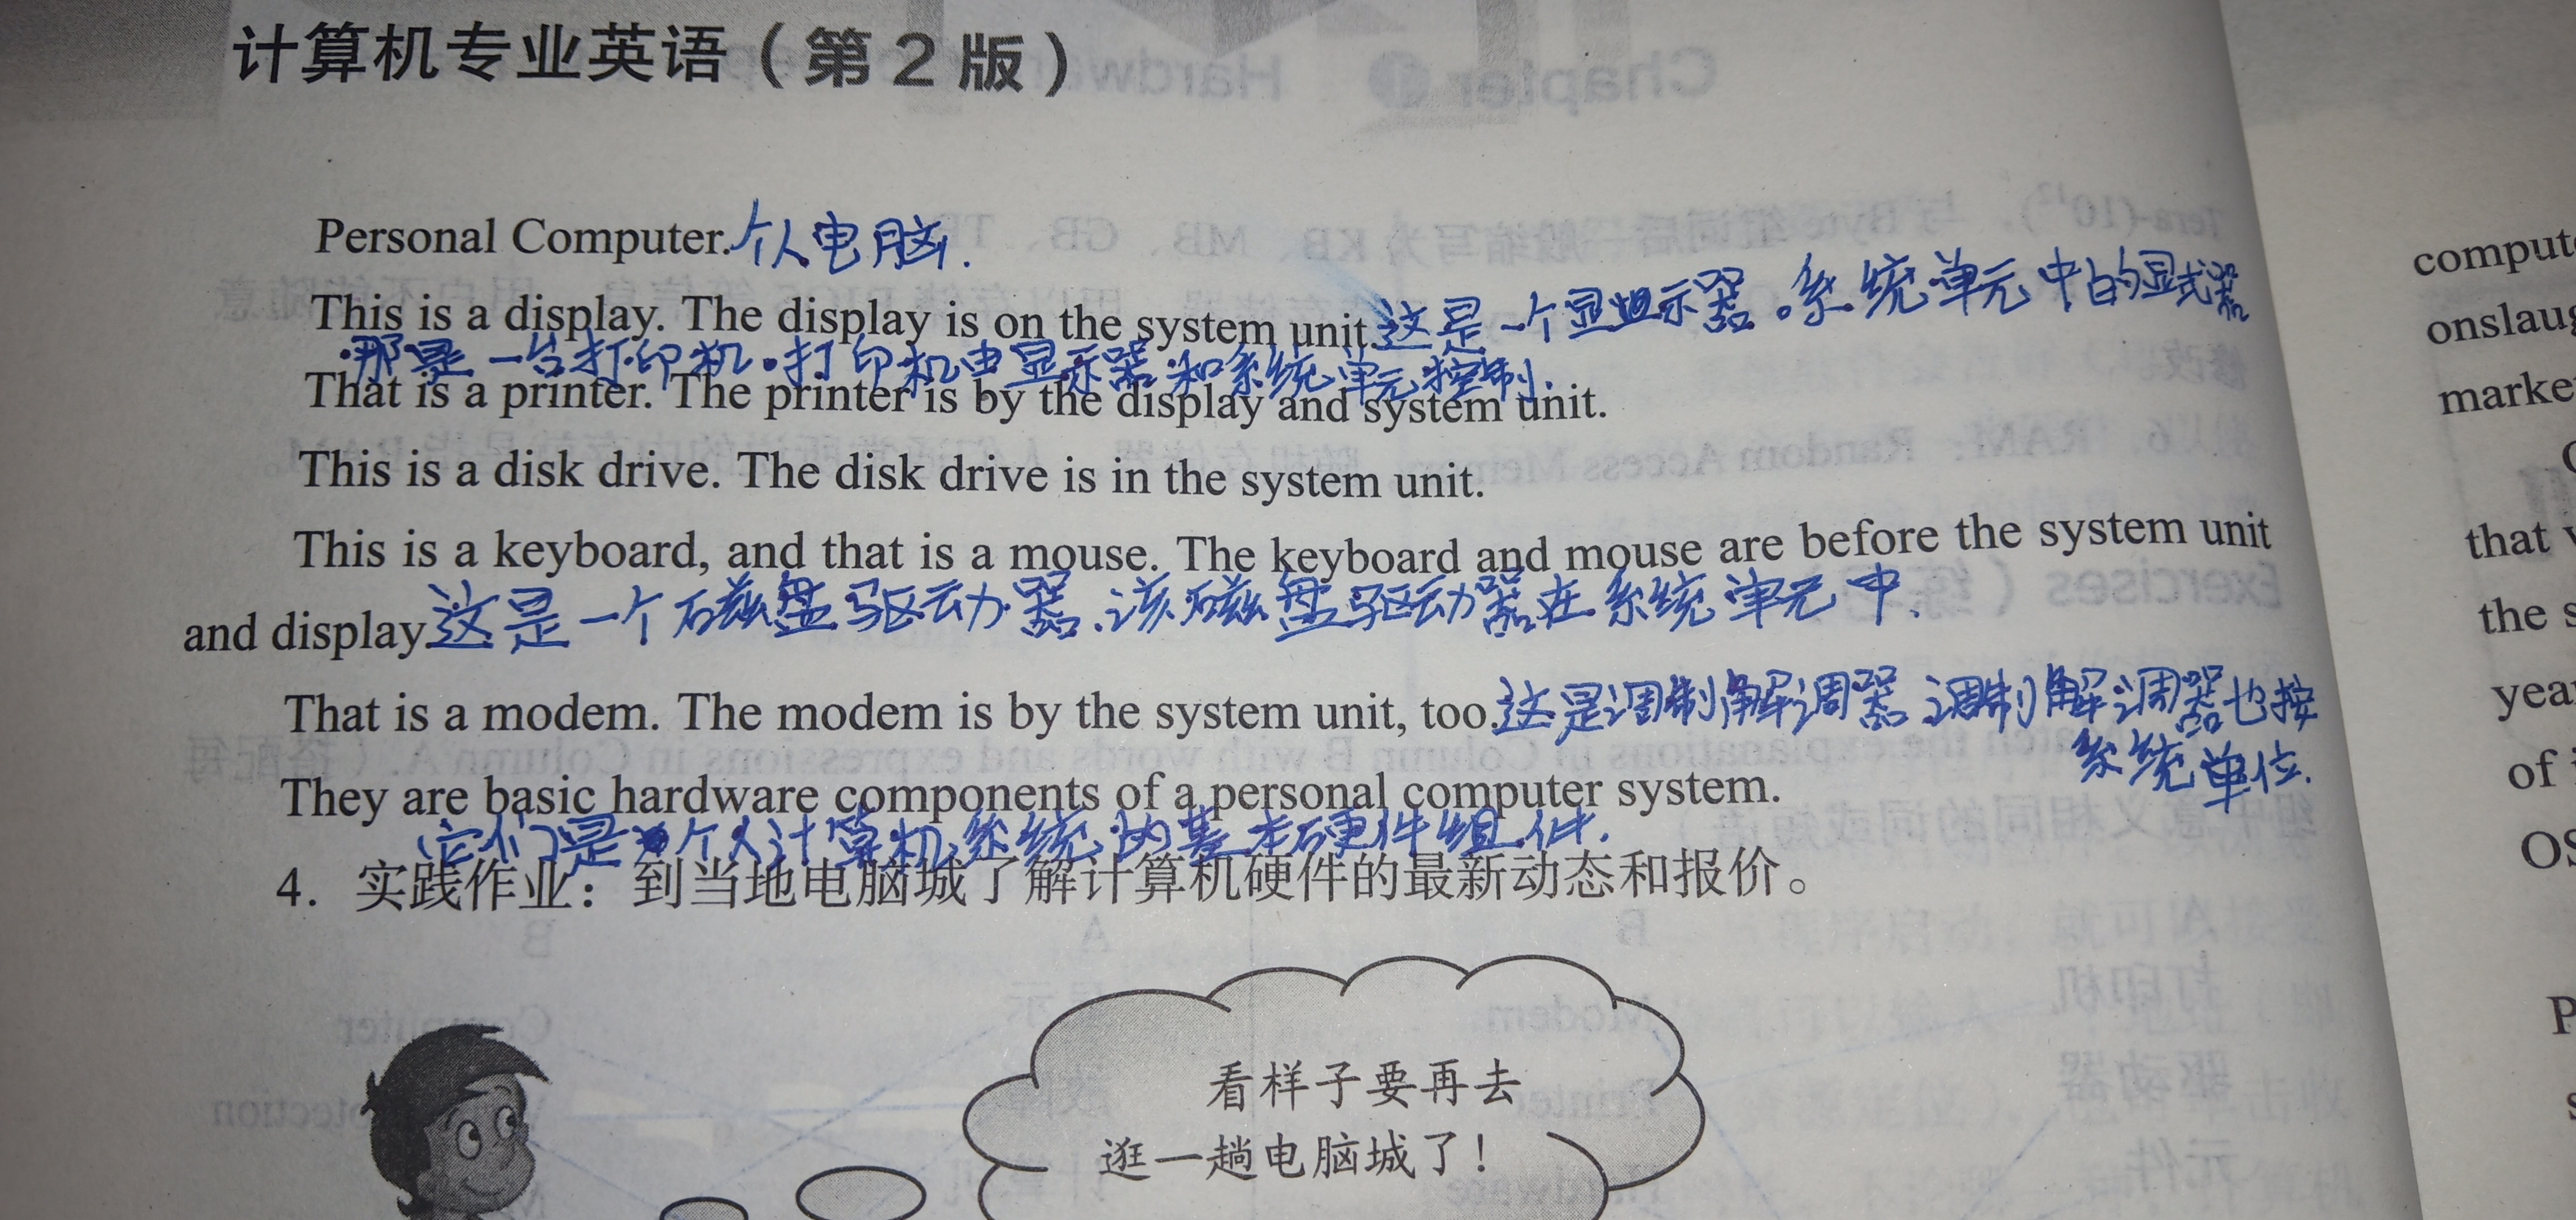 计算机专业英语（第2版）
Personal Computer.个人电脑.
This is a display. The display is on the system unit.这是一个显示器。系统单元中的显式器
.那是一台打印机.打印机由显示器和系统单元控制.
That is a printer. The printer is by the display and system unit.
This is a disk drive. The disk drive is in the system unit.
This is a keyboard, and that is a mouse. The keyboard and mouse are before the system unit
and display.这是一个磁盘驱动器.该磁盘驱动器在系统单元中.
That is a modem. The modem is by the system unit, too.这是调制解调器 调制解调器也按
系统单位.
They are basic hardware components of a personal computer system.
它们是个人计算机系统的基本硬件组件.
4. 实践作业：到当地电脑城了解计算机硬件的最新动态和报价。
看样子要再去
逛一趟电脑城了！
onslaug
marke
that
the s
year
of
OS
P